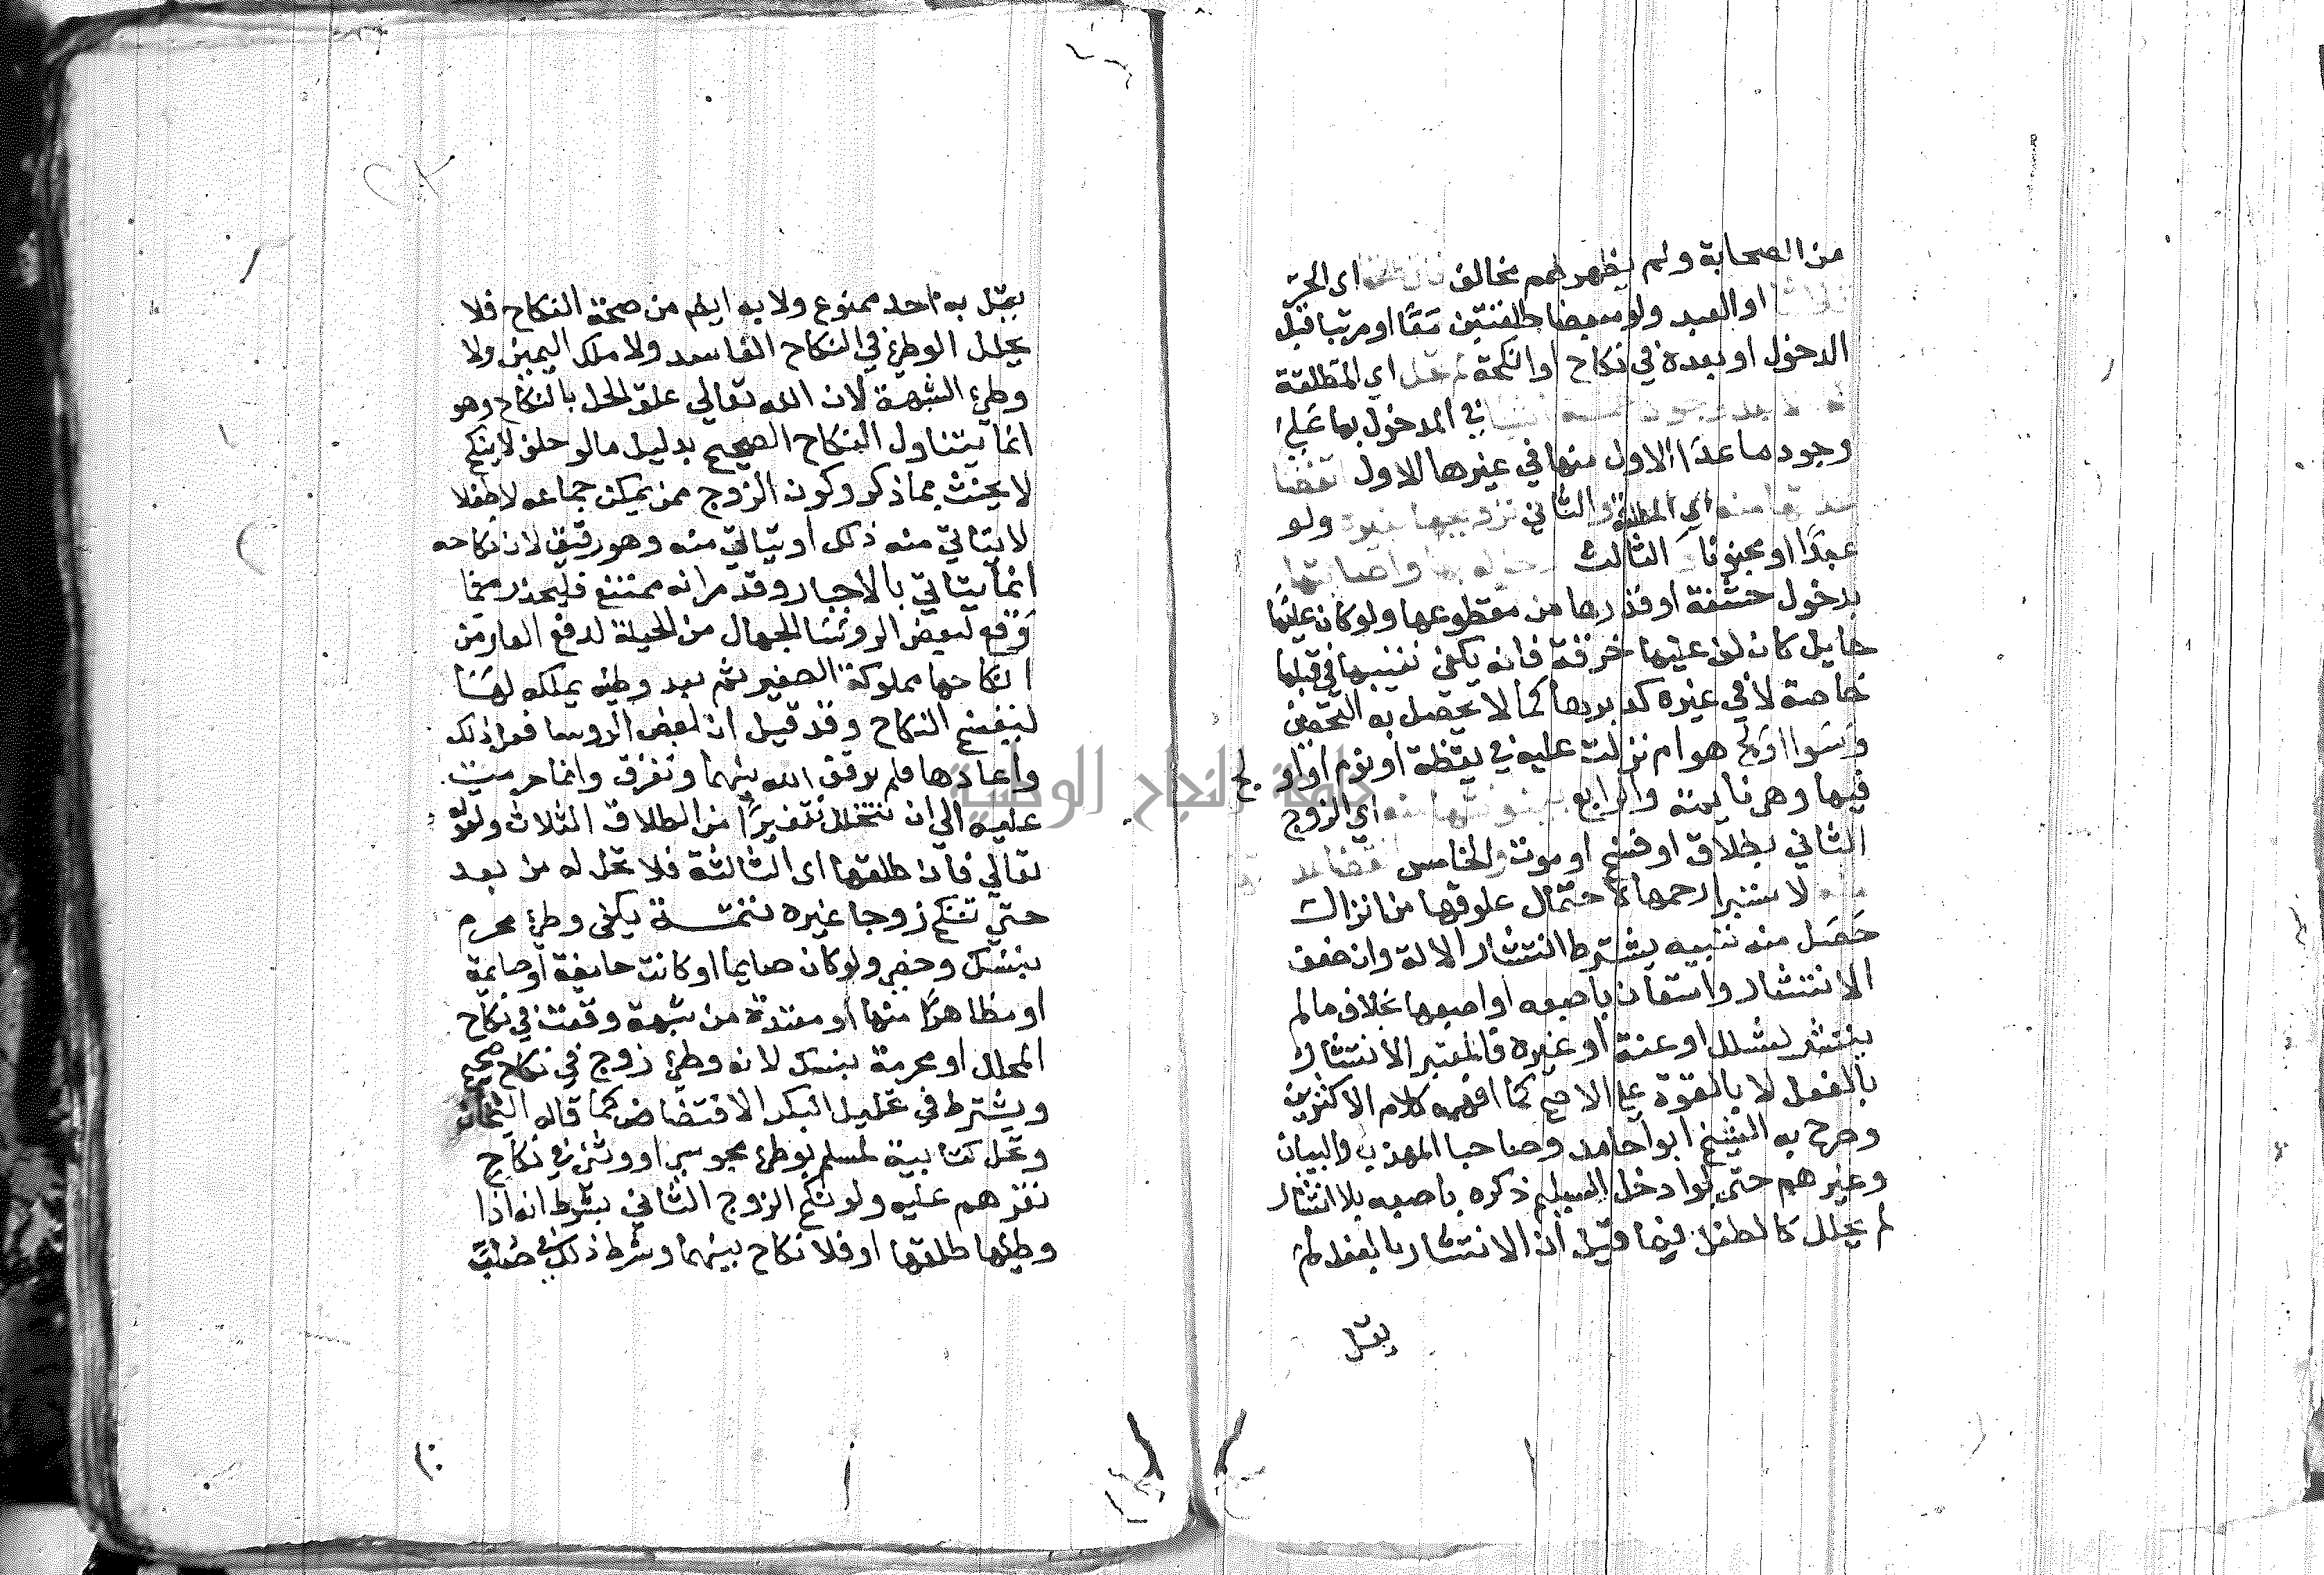 من الصحابة ولم يظهر لهم مخالف فان طلقها اى الحر
ثلاثا او العبد ولو مبعضا طلقتين معًا او مرتبا قبل
الدخول او بعده في نكاح او انكحة لم تحل اي المطلقة
له الا بعد وجود خمسة اشيا في المدخول بها علي
وجود ما عدا الاول منها في غيرها الاول انقضا
عدتها منه اي المطلق والثاني تزويجها بغيره ولو
عبدًا او مجنونا الثالث دخوله بها واصابتها
بدخول حشفة او قدرها من مقطوعها ولو كان عليها
حايل كان لف عليها خرقة فانه يكفي تغييبها في قبلها
خاصة لا في غيره كدبرها كما لا يحصل به التحصين
وسوا اولج هو ام نزلت عليه في يقظة او نوم او اولج
فيها وهي نايمة والرابع بينونتها منه اي الزوج
الثاني بطلاق او فسخ او موت والخامس انقضا عدتها
منه لاستبرا رحمها لاحتمال علوقها من انزال
حصل منه تنبيه يشترط انتشار الالة وان ضعف
الانتشار واستعان باصبعه او اصبعها بخلاف ما لم
ينتشر لشلل او عنة او غيره فالمعتبر الانتشار
بالفعل لا بالقوة علي الاصح كما افهمه كلام الاكثرين
وصرح به الشيخ ابو احامد وصاحبا المهذب والبيان
وغيرهم حتى لو ادخل السليم ذكره باصبعه بلا انتشار
لم يحلل كالطفل فيما قيل ان الانتشار بالفعل لم
يقل
يقل به احد ممنوع ولا بد ايضا من صحة النكاح فلا
يحلل الوطئ في النكاح الفاسد ولا ملك اليمين ولا
وطئ الشبهة لان الله تعالي علق الحل بالنكاح وهو
انما يتناول النكاح الصحيح بدليل ما لو حلف لا ينكح
لا يحنث بما ذكر وكون الزوج ممن يمكن جماعه لا طفلا
لا يتاتي منه ذلك او يتاتي منه وهو رقيق لان نكاحه
انما يتاتي بالاجبار وقد مر انه ممتنع فليحذر مما
وقع لبعض الروسا الجهال من الحيلة لدفع العار من
انكاحها مملوكة الصغير ثم بعد وطئه يملكه لها
لينفسخ النكاح وقد قيل ان بعض الروسا فعل ذلك
واعادها فلم يوفق الله بينهما وتفرق وانما حرمت
عليه الي ان تتحلل تنفيرًا من الطلاق الثلاث ولقوله
تعالي فان طلقها اى الثالثة فلا تحل له من بعد
حتي تنكح زوجا غيره تتمة يكفي وطئ محرم
بنسك وخصي ولو كان صايما او كانت حايضة او صايمة
او مظاهرًا منها او معتدة من شبهة وقعت في نكاح
المحلل او محرمة بنسك لانه وطئ زوج في نكاح صحيح
ويشترط في تحليل البكر الافتضاض كما قاله الشيخان
وتحل كتابية لمسلم بوطئ مجوسي او وثني في نكاح
نقرهم عليه ولو نكح الزوج الثاني بشرط انه اذا
وطئها طلقها او فلا نكاح بينهما وشرط ذلك في صلب